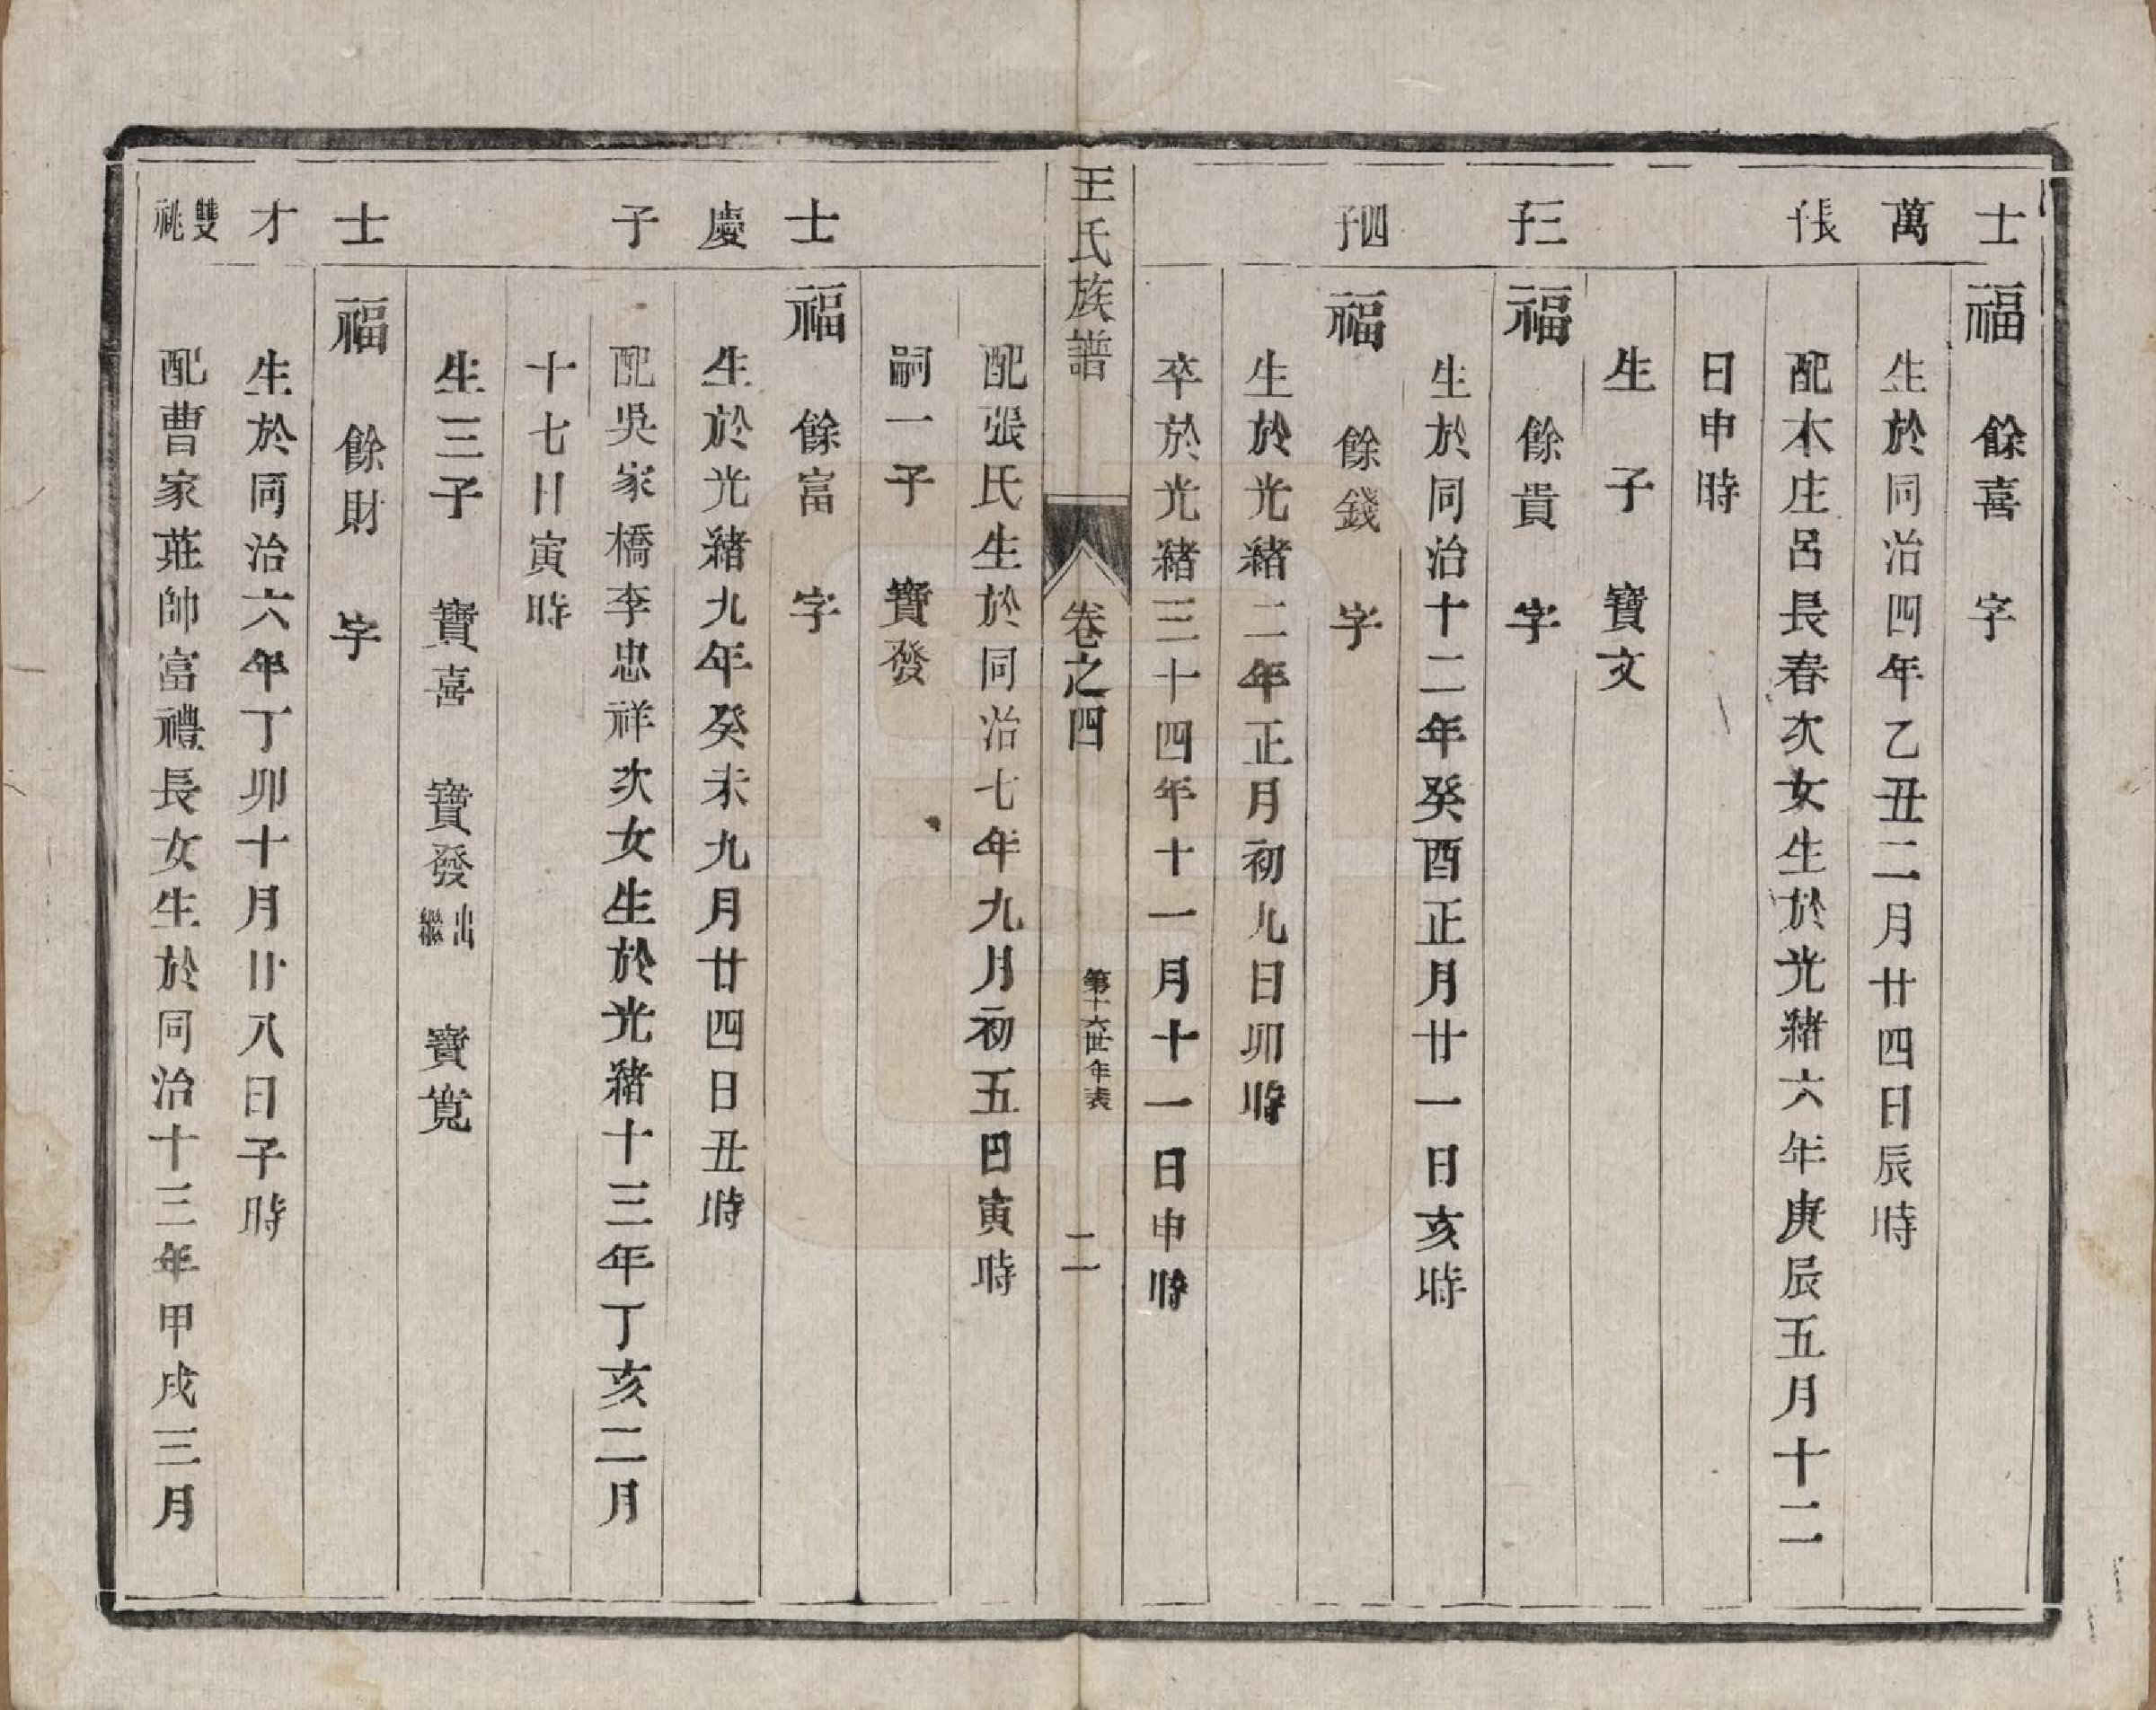 士
福 餘喜 字
萬
生於同治四年乙丑二月廿四日辰時
長子
配木庄呂長春次女生於光緒六年庚辰五月十二
日申時
生 子 寶文
三子
福 餘貴 字
生於同治十二年癸酉正月廿一日亥時
四子
福 餘錢 字
生於光緒二年正月初九日卯時
卒於光緒三十四年十一月十一日申時
王氏族譜 卷之四 第十六世年表 二
配張氏生於同治七年九月初五日寅時
嗣一子 寶發
士
福 餘富 字
慶
生於光緒九年癸未九月廿四日丑時
子
配吳家橋李忠祥次女生於光緒十三年丁亥二月
十七日寅時
生三子 寶喜 寶發出繼 寶寬
士
福 餘財 字
才
生於同治六年丁卯十月廿八日子時
雙祧
配曹家莊帥富禮長女生於同治十三年甲戌三月